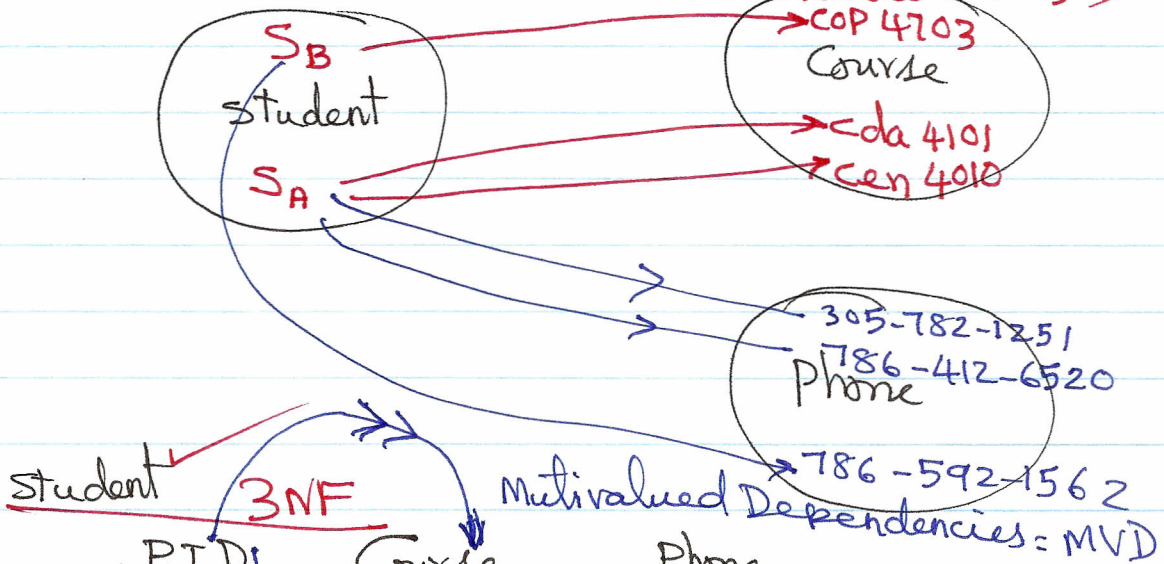 COP 4703
SB
Course
student
cda 4101
SA
cen 4010
305-782-1251
786-412-6520
Phone
786-592-1562
student
3NF
Mutivalued Dependencies = MVD
PID
Course
Phone